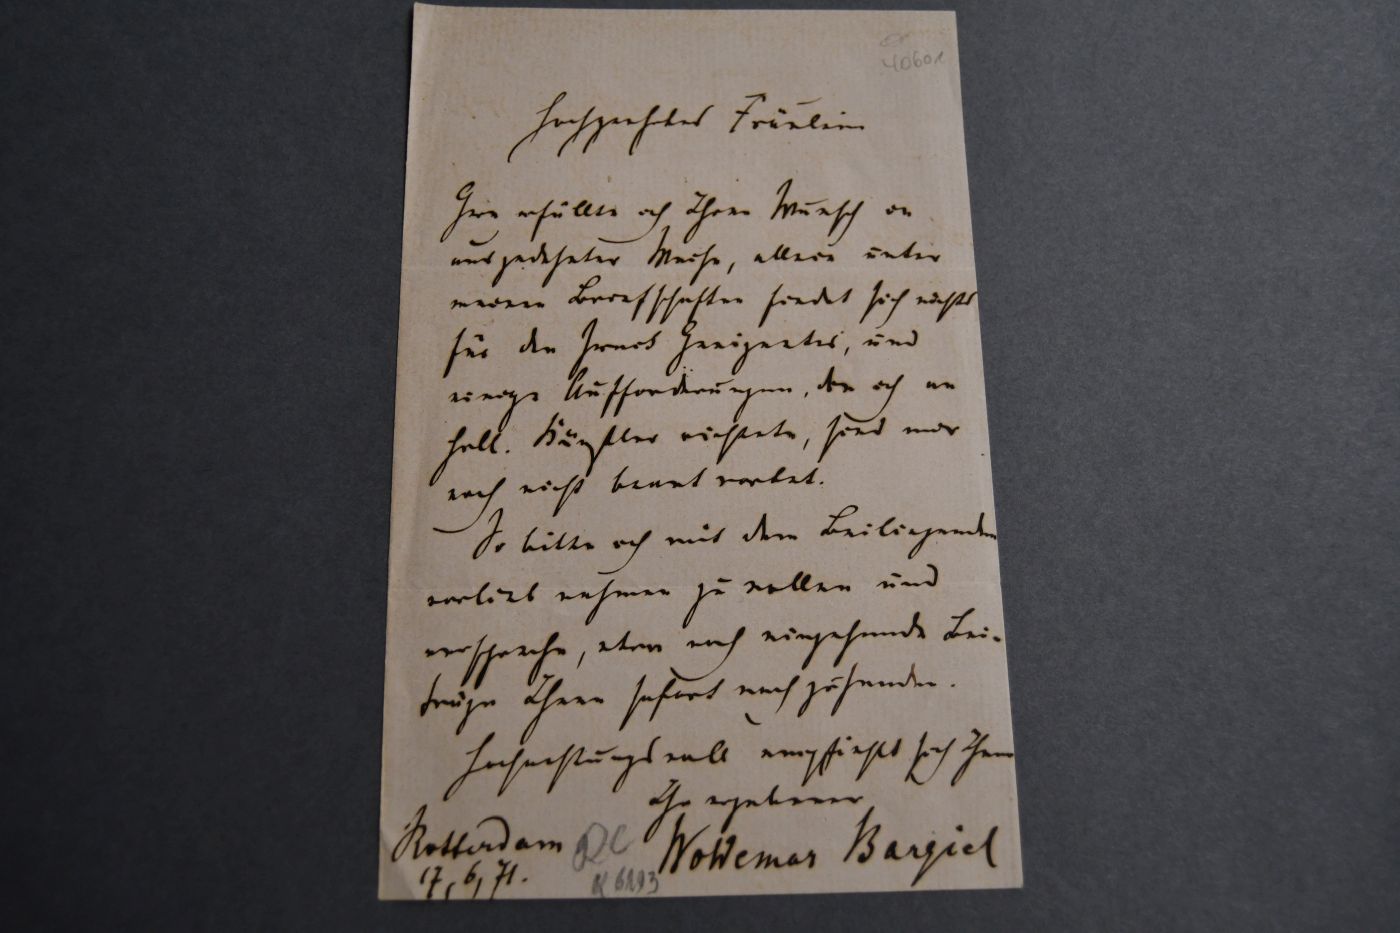 40601
Hochgeehrtes Fräulein
Gern erfüllte ich Ihren Wunsch in
ausgedehnter Weise, allein unter
meinen Briefschaften findet sich nichts
für den Zweck Geeignetes, und
einige Aufforderungen, die ich an
holl. Künstler richtete, sind mir
noch nicht beantwortet.
So bitte ich mit dem Beiliegenden
vorlieb nehmen zu wollen und
verspreche, etwa noch eingehende Bei-
träge Ihnen sofort nachzusenden.
Hochachtungsvoll empfiehlt sich Ihnen
Ihr ergebener
Woldemar Bargiel
Rotterdam
17, 6, 71.